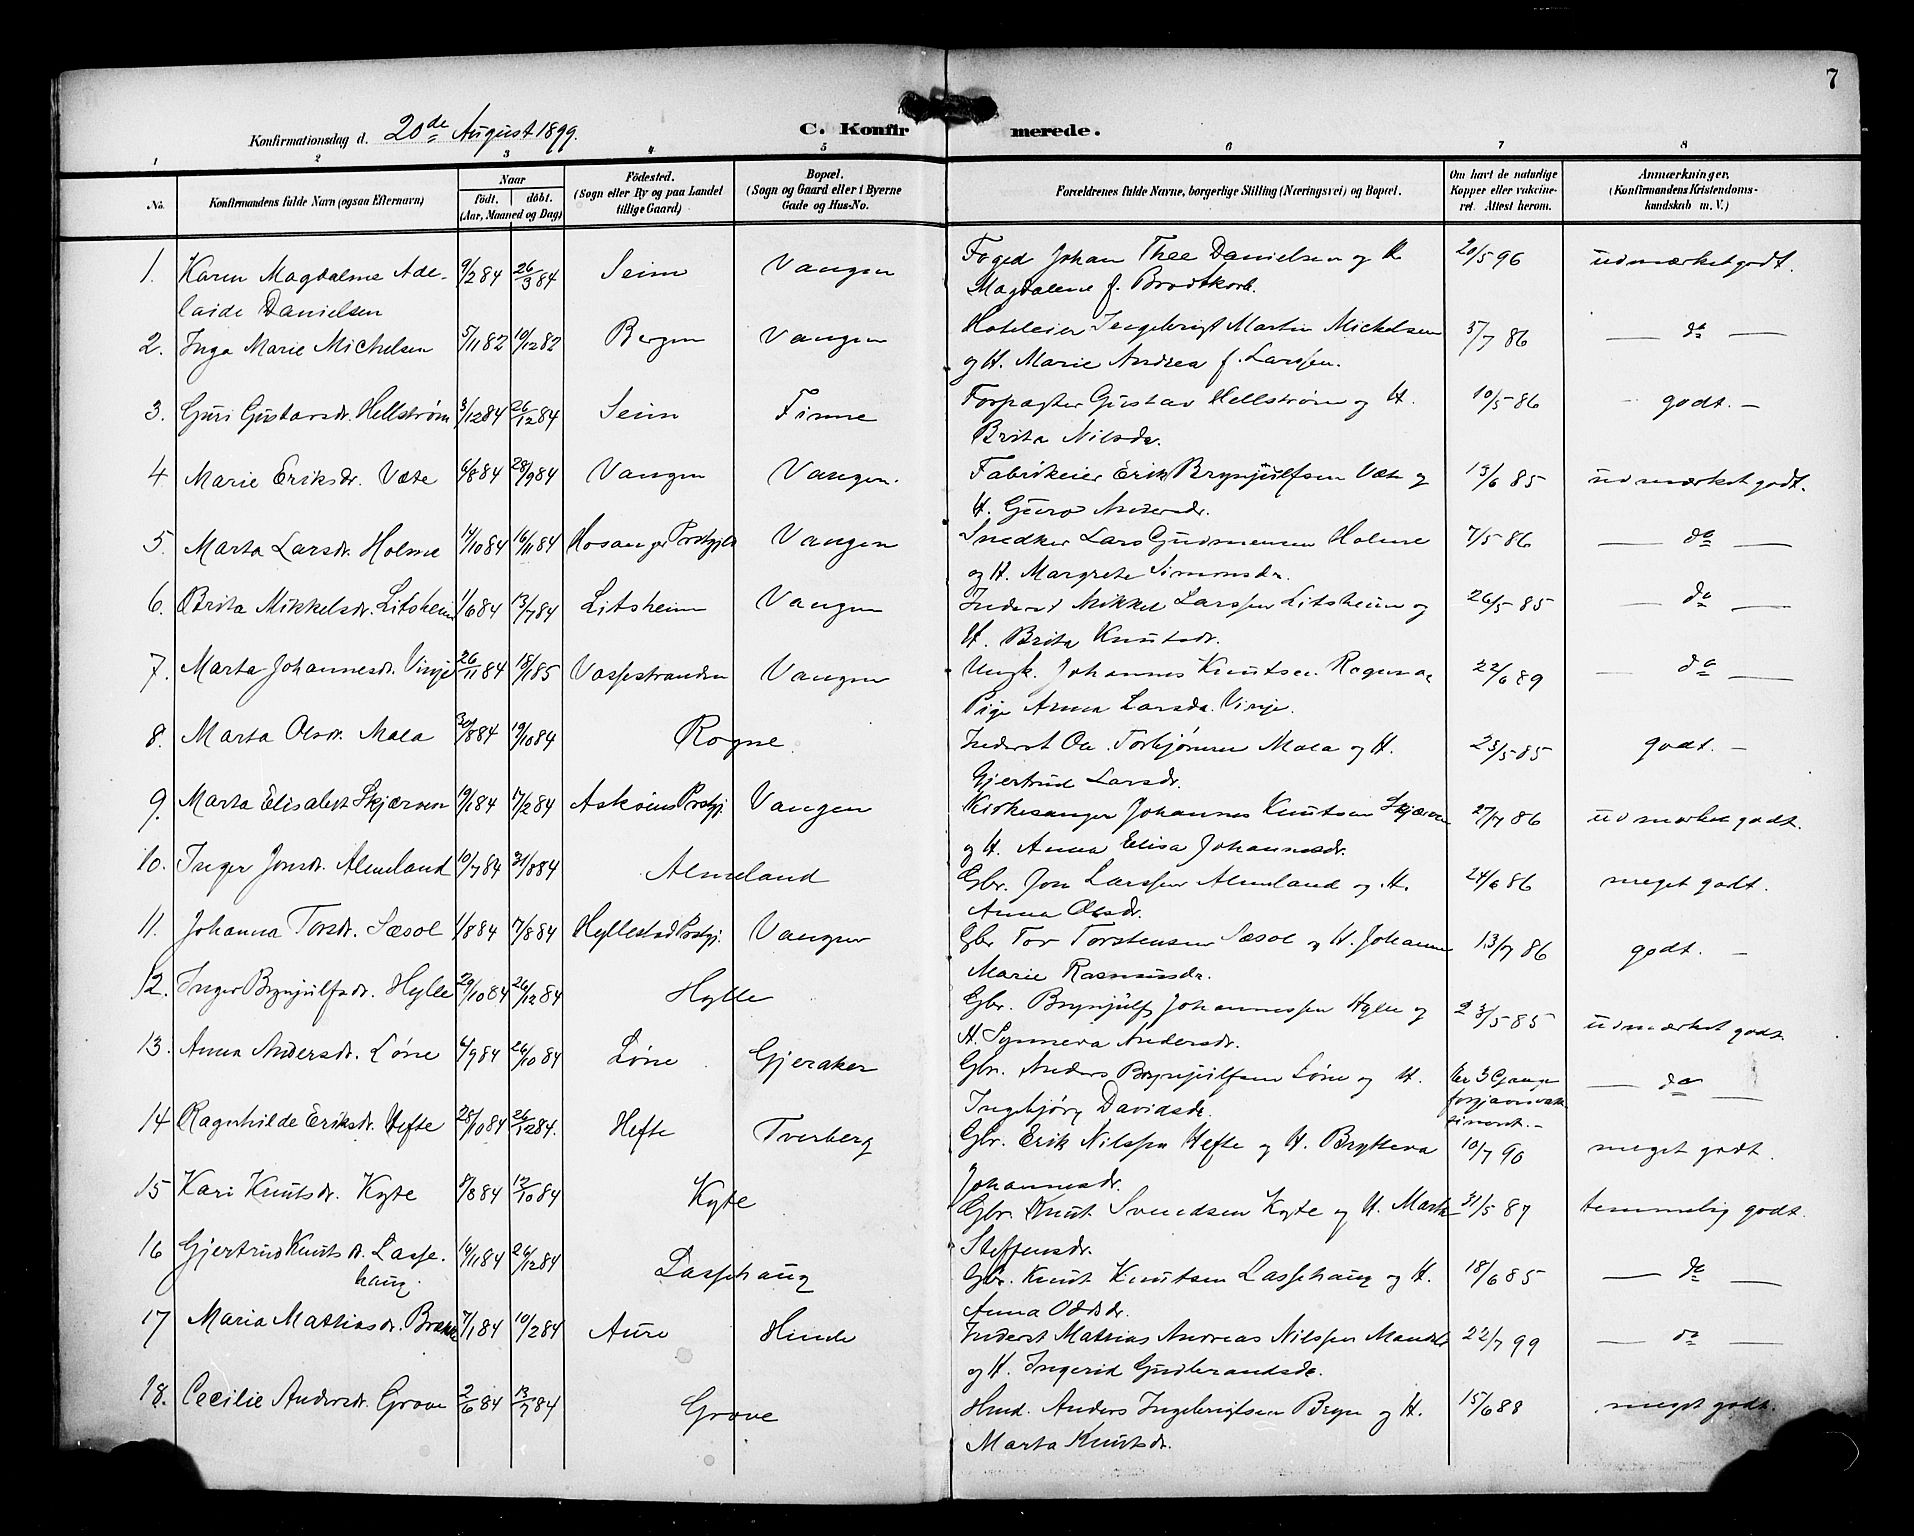 7
Konfirmationsdag d. 20de August 1899.
C. Konfirmerede.
1 2 3 4 5 6 7 8
No.
Konfirmandens fulde Navn (ogsaa Efternavn)
Naar
födt. döbt.
(Aar, Maaned og Dag)
Födested.
(Sogn eller By og paa Landet
tillige Gaard)
Bopæl.
(Sogn og Gaard eller i Byerne
Gade og Hus-No.
Forældrenes fulde Navne, borgerlige Stilling (Næringsvei) og Bopæl.
Om havt de naturlige
Kopper eller vakcine-
ret. Attest herom.
Anmærkninger.
(Konfirmandens Kristendoms-
kundskab m. V.)
1. Karen Magdalene Ade- 9/2 84 26/3 84 Seim Vangen Foged Johan Thee Danielsen og H. 20/5 96 udmærket godt.
laide Danielsen Magdalene f. Brodtkorb.
2. Inga Marie Michelsen 5/11 82 10/12 82 Bergen Vangen Hoteleier Ingebrigt Martin Michelsen 5/7 86 — do —
og H. Marie Andrea f. Larssen.
3. Guri Gustavsdr. Hellstrøm 3/12 84 26/12 84 Seim Finne Forpagter Gustav Hellstrøm og H. 10/5 86 godt. —
Brita Nilsdr.
4 Marie Eriksdr. Væte 6/8 84 28/9 84 Vangen Vangen. Fabrikeier Erik Brynjulfsen Væte og 13/6 85 udmærket godt.
H. Guro Andersdr.
5. Marta Larsdr. Holme 14/10 84 16/11 84 Hosanger Prstgjld Vangen Snedker Lars Gudmensen Holme 7/5 86 — do —
og H. Margrete Simonsdr.
6. Brita Mikkelsdr. Litsheim 1/6 84 13/7 84 Litsheim Vangen Inderst Mikkel Larssen Litsheim og 26/5 85 — do —
H. Brita Knutsdr.
7. Marta Johannesdr. Vinje 26/11 84 18/1 85 Vossestranden Vangen Ungk. Johannes Knutsen Rogne og 22/6 89 — do —
Pige Anna Larsdr. Vinje.
8. Marta Olsdr. Mala 30/8 84 19/10 84 Rogne. Inderst Ole Torbjørnsen Mala og H. 23/5 85 godt. —
Gjertrud Larsdr.
9. Marta Elisabet Skjerven 19/1 84 17/2 84 Askøens Prstgj. Vangen Kirkesanger Johannes Knutsen Skjerven 27/7 86 udmærket godt.
og H. Anna Elisa Johannesdr.
10. Inger Jonsdr. Almeland 10/7 84 31/8 84 Almeland Gbr. Jon Larssen Almeland og H. 24/6 86 meget godt.
Anna Olsdr.
11. Johanna Torsdr. Sæsol 1/8 84 17/8 84 Hyllestad Prstgj. Vangen Gbr Tor Torstensen Sæsol og H. Johanna 13/7 86 godt. —
Marie Rasmusdr.
12. Inger Brynjulfsdr. Hylle 29/10 84 26/12 84 Hylle Gbr. Brynjulf Johannessen Hylle og 23/5 85 udmærket godt.
H. Synneva Andersdr.
13. Anna Andersdr. Løne 6/9 84 26/10 84 Løne Gjeraker Gbr. Anders Brynjulfsen Løne og H. Er 3 Gange — do —
Ingebjørg Davidsdr. forgjæves vak-
cineret. —
14 Ragnhilde Eriksdr. Hefte 28/10 84 26/12 84. Hefte Tverberg Gbr. Erik Nilssen Hefte og H. Brytteva 10/7 90 meget godt.
Johannesdr.
15 Kari Knutsdr. Kyte 8/8 84 12/10 84 Kyte Gbr. Knut Svendsen Kyte og H. Marta 31/5 87 temmelig godt.
Steffensdr.
16 Gjertrud Knutsdr. Lasse- 16/11 84 26/12 84 Lassehaug Gbr. Knut Knutsen Lassehaug og H. 18/6 85 — do —
haug. Anna Oddsdr.
17 Maria Mathiasdr. 7/1 84 10/2 84 Aure Hinde Inderst Mathias Andreas Nilssen 22/7 99 — do —
og H. Ingerid Gudbrandsdr.
18. Cecilie Andersdr. Grove 2/6 84 13/7 84 Grove Hmd. Anders Ingebrigtsen Bryn og H. 15/6 88 meget godt.
Marta Knutsdr.